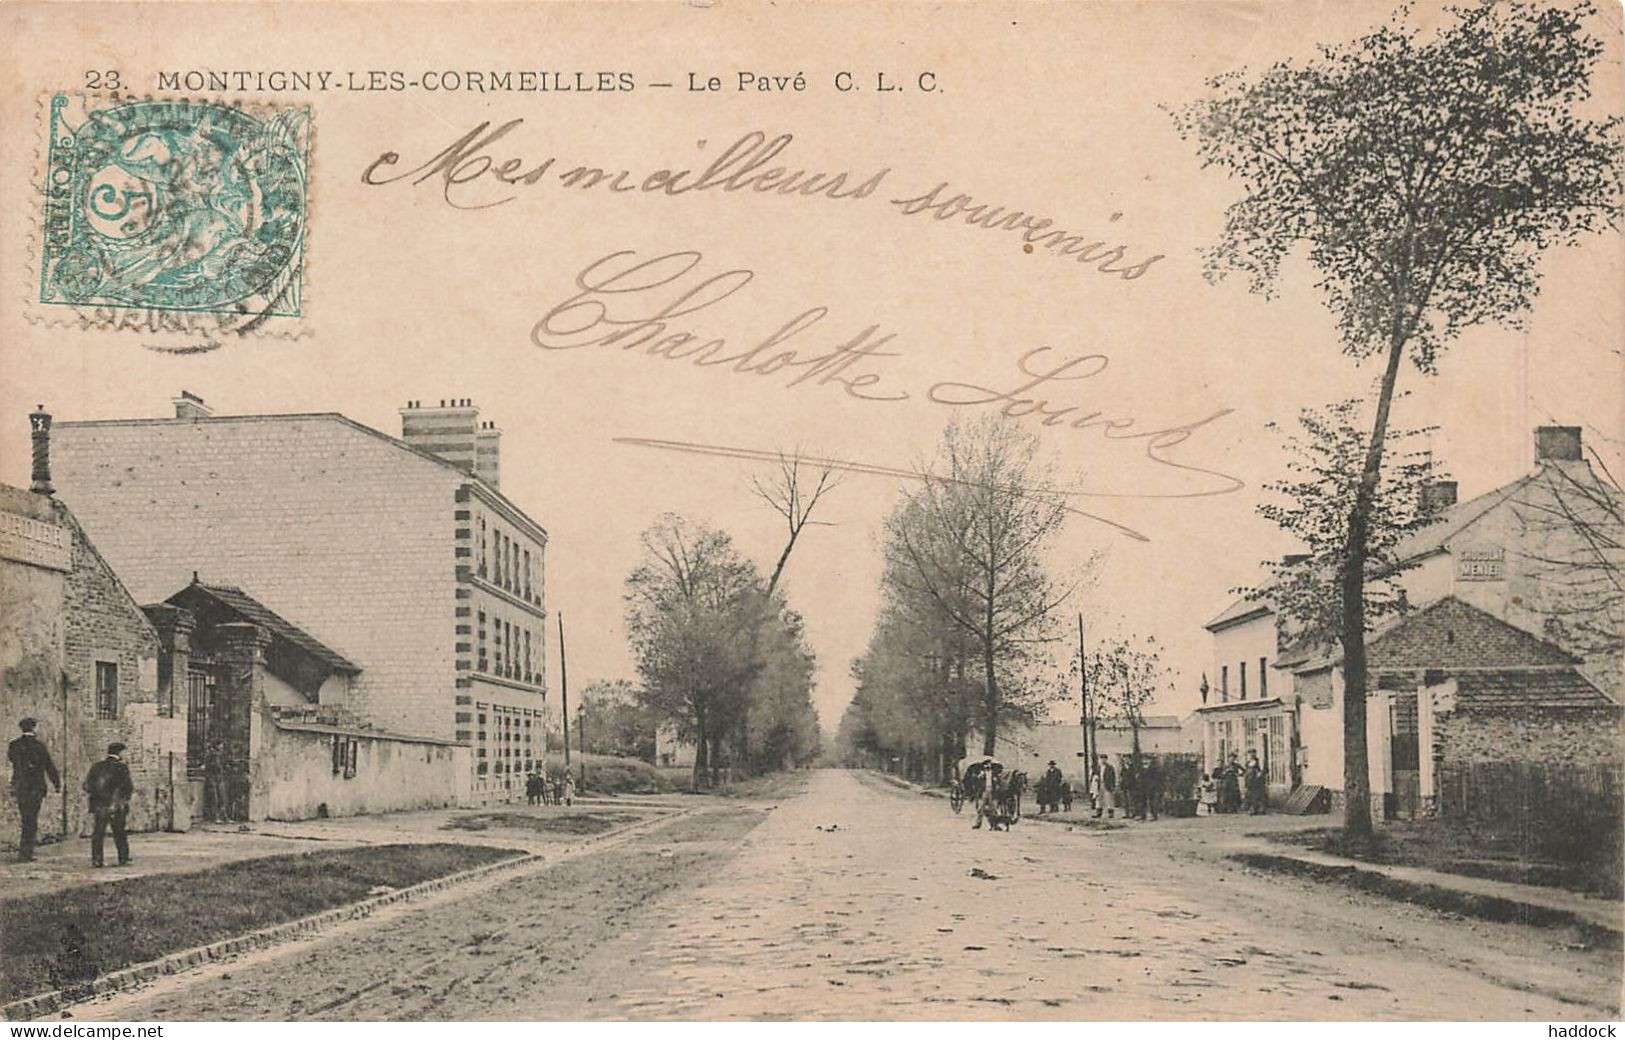 23. MONTIGNY-LES-CORMEILLES — Le Pavé C. L. C.
POSTES
5
Mes meilleurs souvenirs
Charlotte
CHOCOLAT
MENIER
www.delcampe.net
haddock